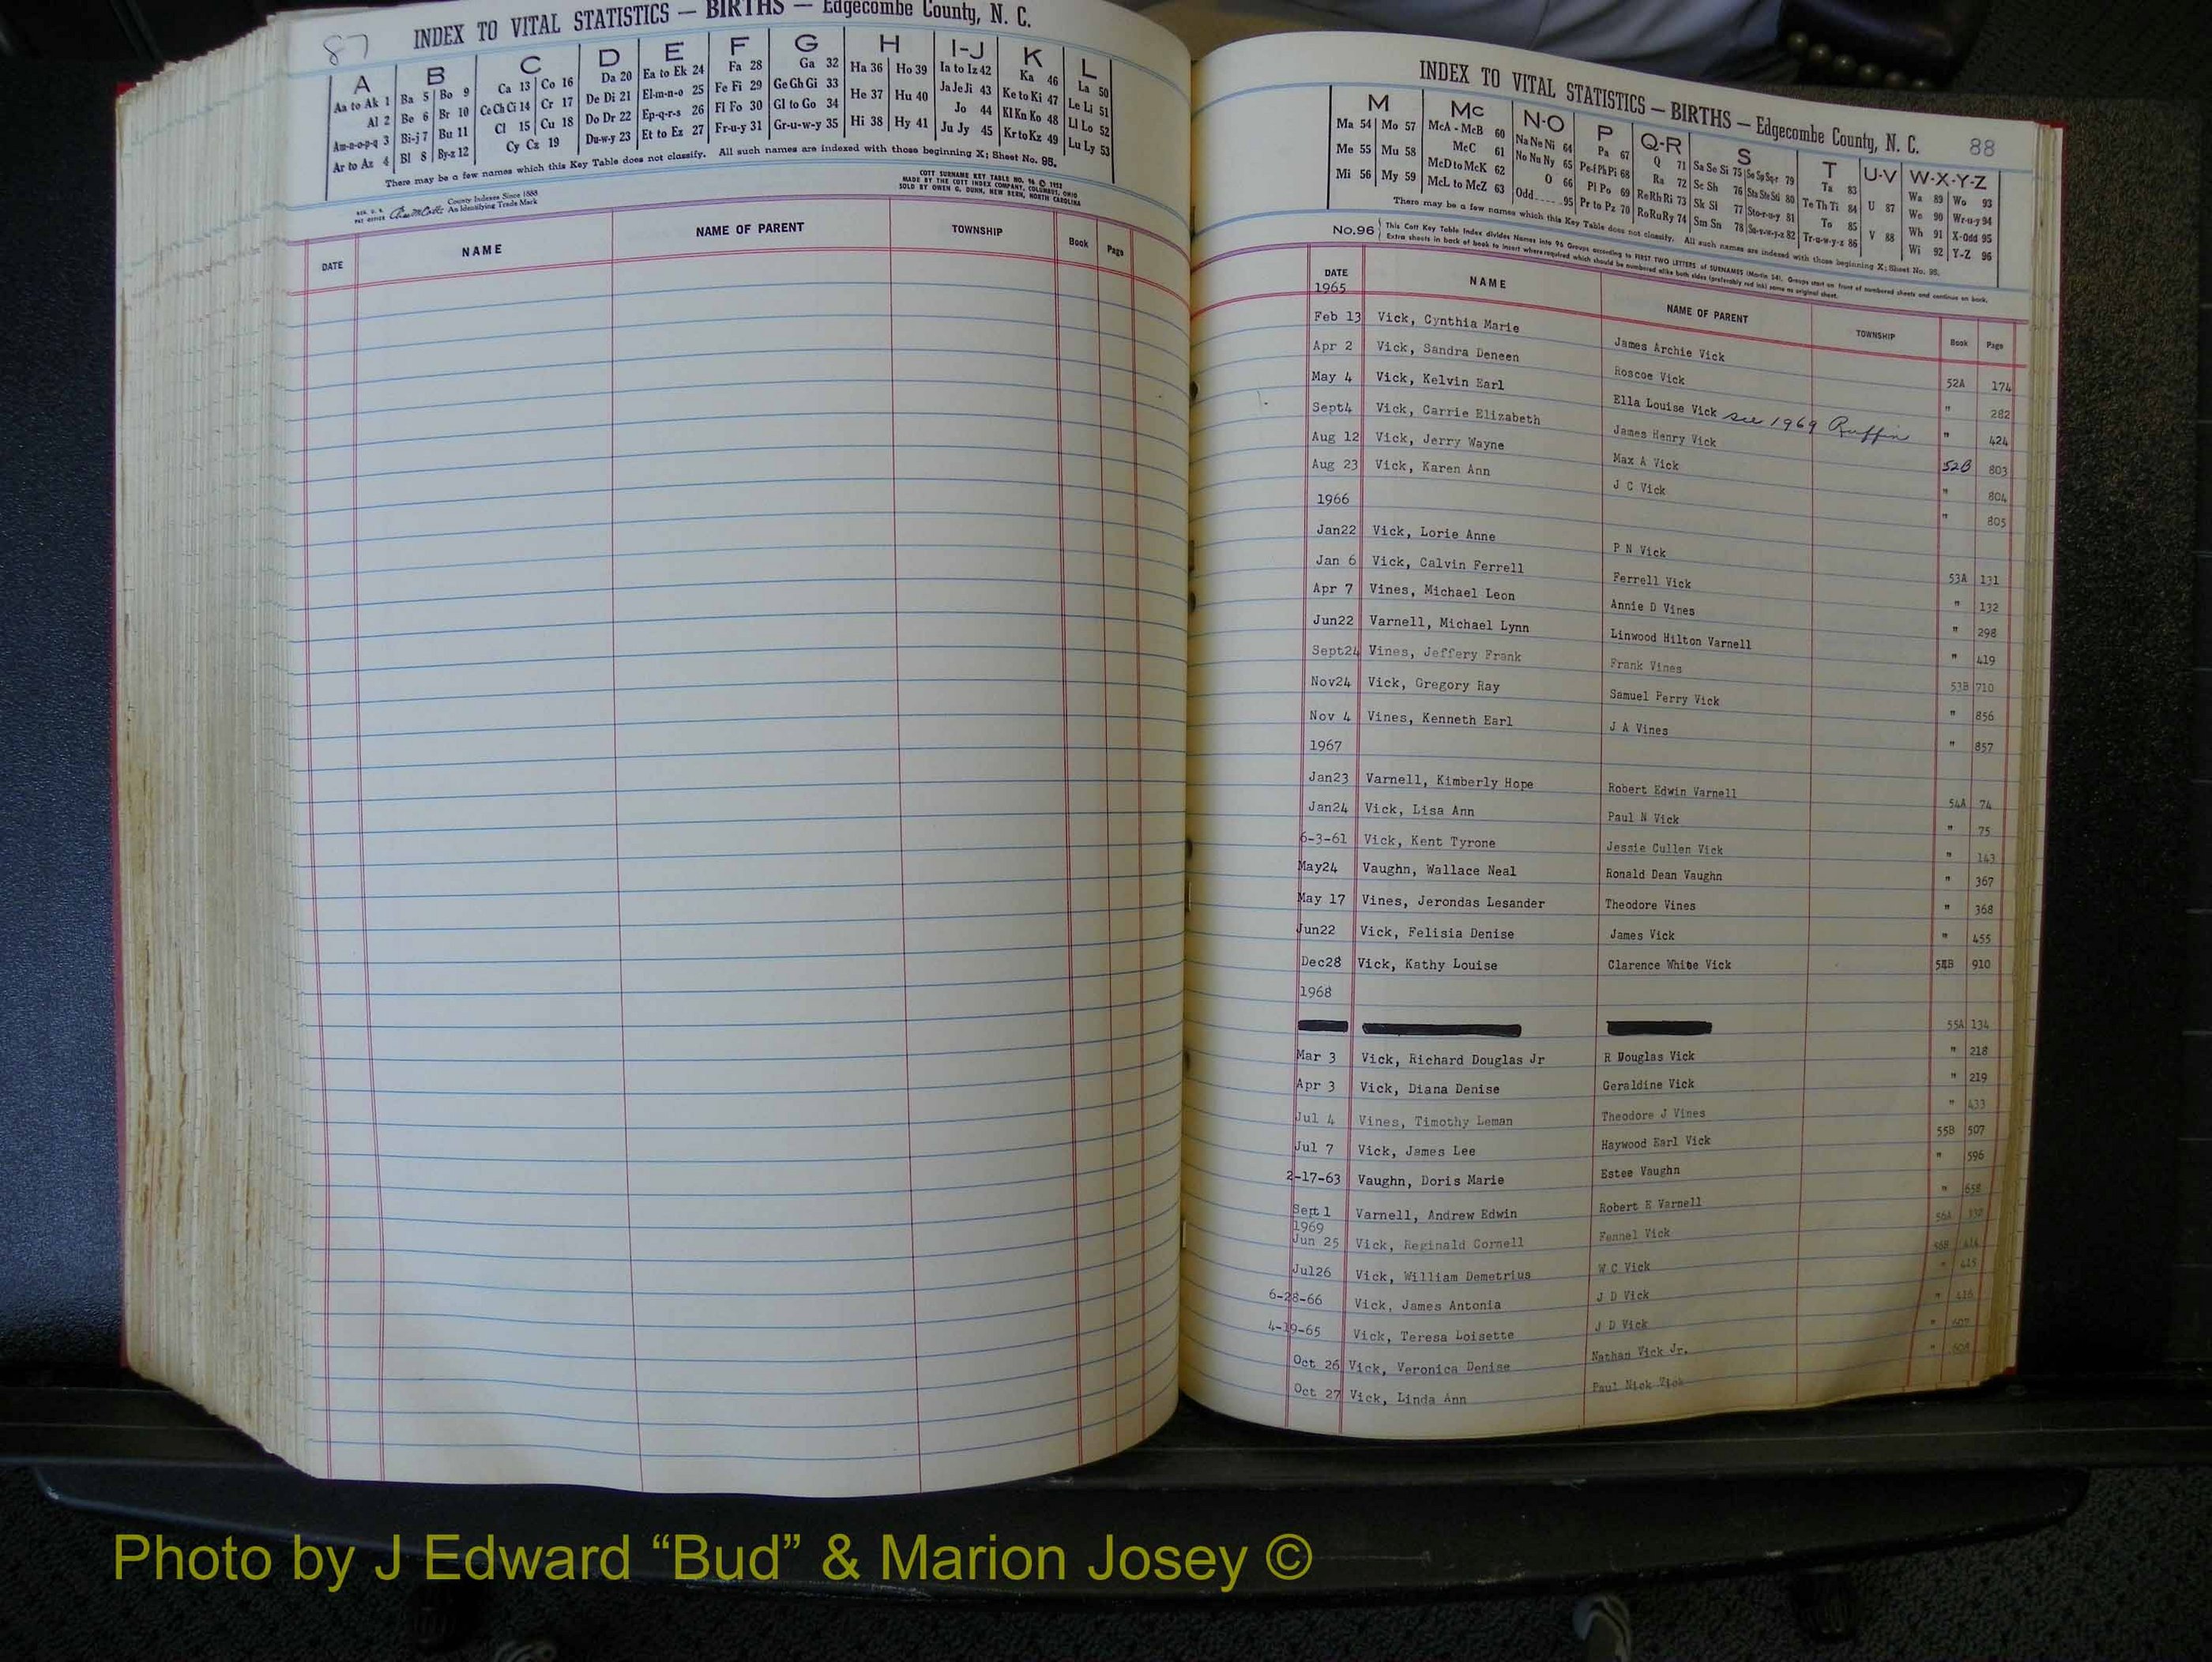 87
INDEX TO VITAL STATISTICS — BIRTHS — Edgecombe County, N. C.
A B C D E F G H I-J K L
Aa to Ak 1 Ba 5 Bo 9 Ca 13 Co 16 Da 20 Ea to Ek 24 Fa 28 Ga 32 Ha 36 Ho 39 Ia to Iz 42 Ka 46 La 50
Al 2 Be 6 Br 10 Ce Ch Ci 14 Cr 17 De Di 21 El-m-n-o 25 Fe Fi 29 Ge Gh Gi 33 He 37 Hu 40 Ja Je Ji 43 Ke to Ki 47 Le Li 51
Am-n-o-p-q 3 Bi-j 7 Bu 11 Cl 15 Cu 18 Do Dr 22 Ep-q-r-s 26 Fl Fo 30 Gl to Go 34 Hi 38 Hy 41 Jo 44 Kl Kn Ko 48 Ll Lo 52
Ar to Az 4 Bl 8 By-z 12 Cy Cz 19 Du-w-y 23 Et to Ez 27 Fr-u-y 31 Gr-u-w-y 35 Ju Jy 45 Kr to Kz 49 Lu Ly 53
There may be a few names which this Key Table does not classify. All such names are indexed with those beginning X; Sheet No. 95.
County Indexes Since 1888
An Identifying Trade Mark
COTT SURNAME KEY TABLE NO. 96 © 1952
MADE BY THE COTT INDEX COMPANY, COLUMBUS, OHIO
SOLD BY OWEN G. DUNN, NEW BERN, NORTH CAROLINA
DATE NAME NAME OF PARENT TOWNSHIP Book Page
INDEX TO VITAL STATISTICS — BIRTHS — Edgecombe County, N. C. 88
M Mc N-O P Q-R S T U-V W-X-Y-Z
Ma 54 Mo 57 McA - McB 60 Na Ne Ni 64 Pa 67 Q 71 Sa Se Si 75 So Sp Sq-r 79 Ta 83 U 87 Wa 89 Wo 93
Me 55 Mu 58 McC 61 No Nu Ny 65 Pe-f Ph Pi 68 Ra 72 Sc Sh 76 Sta Ste Sti 80 Te Th Ti 84 V 88 We 90 Wr-u-y 94
Mi 56 My 59 McD to McK 62 O 66 Pl Po 69 Re Rh Ri 73 Sk Sl 77 Sto-r-u-y 81 To 85 Wh 91 X-Odd 95
McL to McZ 63 Odd 95 Pr to Pz 70 Ro Ru Ry 74 Sm Sn 78 Su-v-w-y-z 82 Tr-u-w-y-z 86 Wi 92 Y-Z 96
There may be a few names which this Key Table does not classify. All such names are indexed with those beginning X; Sheet No. 95.
No.96 This Cott Key Table Index divides Names into 96 Groups according to FIRST TWO LETTERS of SURNAMES (Martin 54). Groups start on front of numbered sheets and continue on back.
Extra sheets in back of book to insert where required which should be numbered alike both sides (preferably red ink) same as original sheet.
DATE NAME NAME OF PARENT TOWNSHIP Book Page
1965
Feb 13 Vick, Cynthia Marie James Archie Vick 52A 174
Apr 2 Vick, Sandra Deneen Roscoe Vick " 282
May 4 Vick, Kelvin Earl Ella Louise Vick see 1969 Ruffin " 424
Sept4 Vick, Carrie Elizabeth James Henry Vick 52B 803
Aug 12 Vick, Jerry Wayne Max A Vick " 804
Aug 23 Vick, Karen Ann J C Vick " 805
1966
Jan22 Vick, Lorie Anne P N Vick 53A 131
Jan 6 Vick, Calvin Ferrell Ferrell Vick " 132
Apr 7 Vines, Michael Leon Annie D Vines " 298
Jun22 Varnell, Michael Lynn Linwood Hilton Varnell " 419
Sept24 Vines, Jeffery Frank Frank Vines 53B 710
Nov24 Vick, Gregory Ray Samuel Perry Vick " 856
Nov 4 Vines, Kenneth Earl J A Vines " 857
1967
Jan23 Varnell, Kimberly Hope Robert Edwin Varnell 54A 74
Jan24 Vick, Lisa Ann Paul N Vick " 75
6-3-61 Vick, Kent Tyrone Jessie Cullen Vick " 143
May24 Vaughn, Wallace Neal Ronald Dean Vaughn " 367
May 17 Vines, Jerondas Lesander Theodore Vines " 368
Jun22 Vick, Felisia Denise James Vick " 455
Dec28 Vick, Kathy Louise Clarence White Vick 54B 910
1968
55A 134
Mar 3 Vick, Richard Douglas Jr R Douglas Vick " 218
Apr 3 Vick, Diana Denise Geraldine Vick " 219
Jul 4 Vines, Timothy Leman Theodore J Vines " 433
Jul 7 Vick, James Lee Haywood Earl Vick 55B 507
2-17-63 Vaughn, Doris Marie Estee Vaughn " 596
Sept 1 Varnell, Andrew Edwin Robert E Varnell " 658
1969
Jun 25 Vick, Reginald Cornell Fennel Vick 56A 332
Jul26 Vick, William Demetrius W C Vick 56B 414
6-28-66 Vick, James Antonia J D Vick " 415
4-19-65 Vick, Teresa Loisette J D Vick " 416
Oct 26 Vick, Veronica Denise Nathan Vick Jr. " 607
Oct 27 Vick, Linda Ann Paul Nick Vick " 608
Photo by J Edward “Bud” & Marion Josey ©